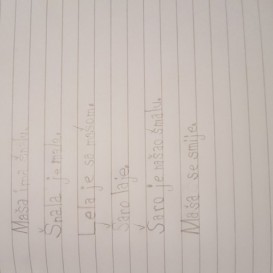 Maša ima
Šnala je mala.
Lela je sa mamom.
Šaro laje.
Šaro je našao šnalu.
Maša se smije.